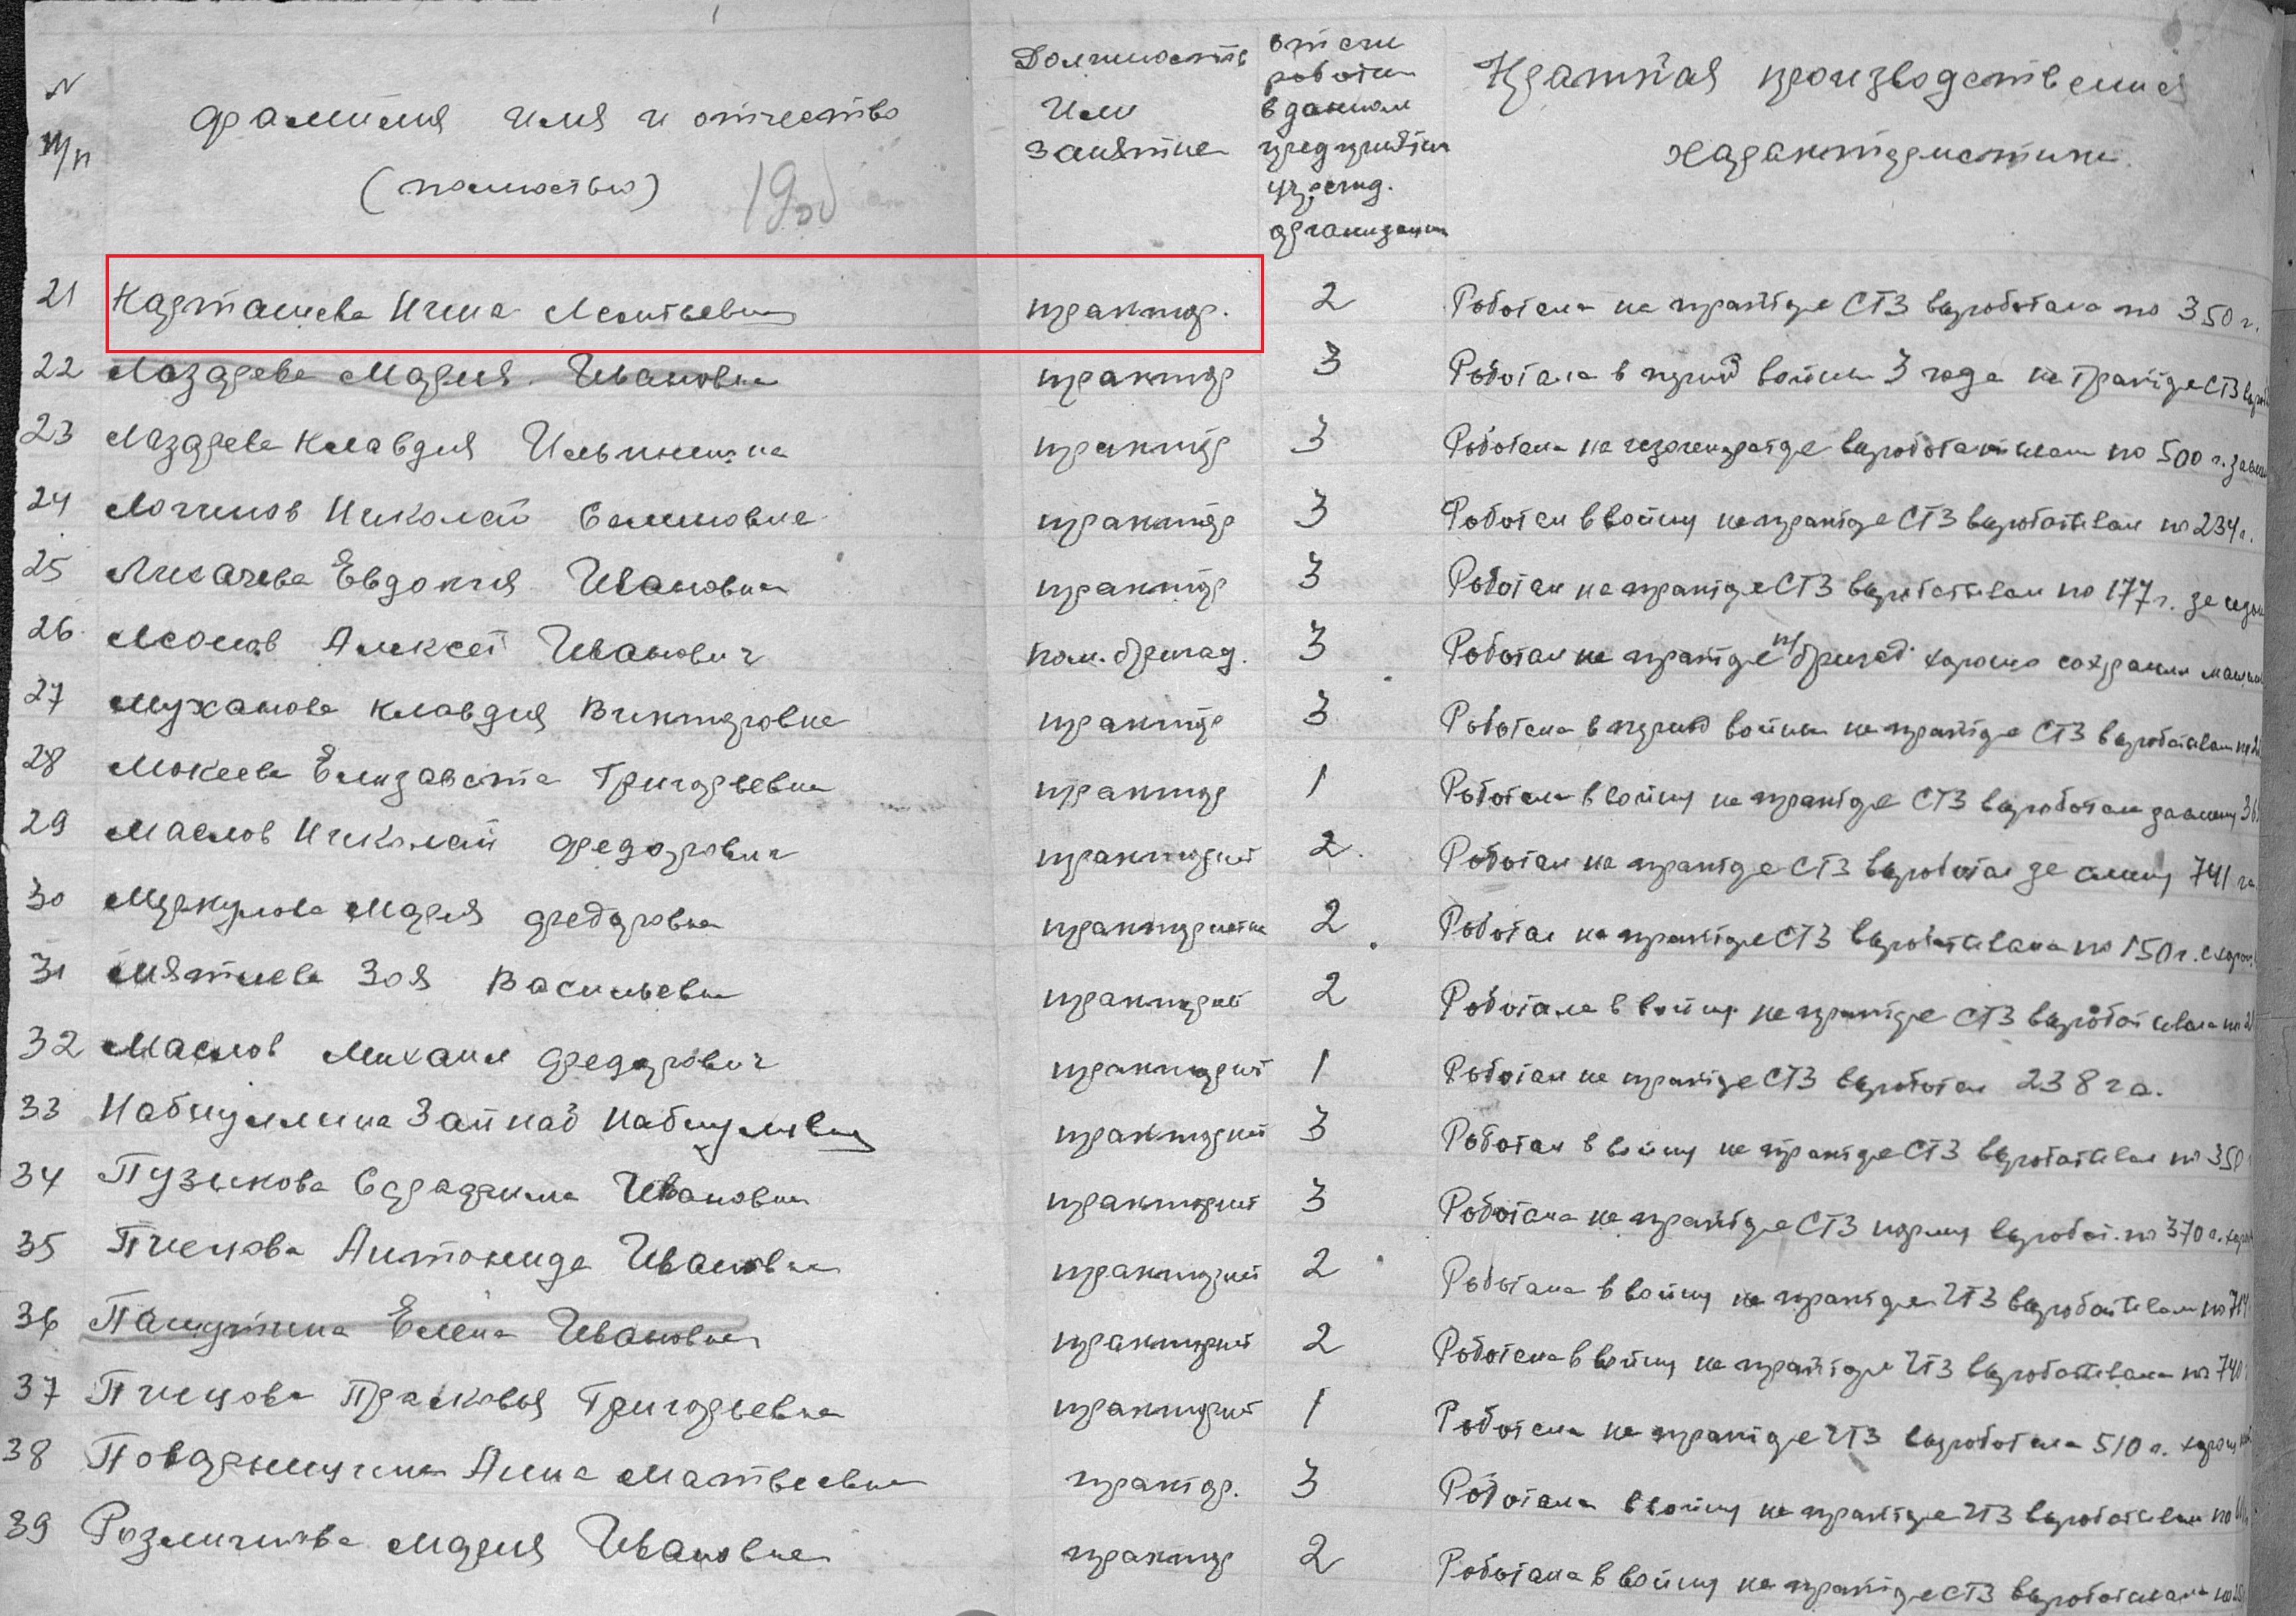 N п/п Фамилия имя и отчество (полностью) Должность или занятие в данном предприятии учрежд. организации Краткая производственная характеристика.
21 Карташева Нина Леонтьевна трактор. 2 Работала на тракторе СТЗ выработала по 350 г.
22 Лазарева Мария Ивановна трактор 3 Работала в период войны 3 года на тракторе СТЗ
23 Лазарева Клавдия Ильинична трактор 3 Работала на газогенераторе вырабатывали по 500 г.
24 Логинов Николай трактор 3 Работал в войну на тракторе СТЗ вырабатывал по 234 г.
25 Лихачева Евдокия Ивановна трактор 3 Работал на тракторе СТЗ вырабатывал по 177 г. за сезон
26 Алексей Иванович пом. бригад. 3 Работал на тракторе п/бригад. хорошо сохранял
27 Муханова Клавдия Викторовна трактор 3 Работала в период войны на тракторе СТЗ вырабатывал
28 Мокеева Елизавета Григорьевна трактор 1 Работала в войну на тракторе СТЗ выработала
29 Маслов Николай Федорович тракторист 2 Работал на тракторе СТЗ выработал за смену 741 га
30 Меркулова Мария Федоровна трактористка 2 Работал на тракторе СТЗ вырабатывала по 150 г.
31 Мятлева Зоя Васильевна тракторист 2 Работала в войну на тракторе СТЗ вырабатывала
32 Маслов Михаил Федорович тракторист 1 Работал на тракторе СТЗ выработал 238 га.
33 Набиуллина Зайнаб тракторист 3 Работал в войну на тракторе СТЗ вырабатывал по 350
34 Пузикова Ивановна тракторист 3 Работала на тракторе СТЗ норму выработ. по 370 г.
35 Антонида Ивановна тракторист 2 Работала в войну на тракторе ЧТЗ вырабатывал по
36 Елена Ивановна тракторист 2 Работала в войну на тракторе ЧТЗ вырабатывала по 740
37 Прасковья Григорьевна тракторист 1 Работала на тракторе ЧТЗ выработала 510 г.
38 Анна Матвеевна трактор. 3 Работала в войну на тракторе ЧТЗ вырабатывал по
39 Мария Ивановна трактор 2 Работала в войну на тракторе СТЗ вырабатывала по